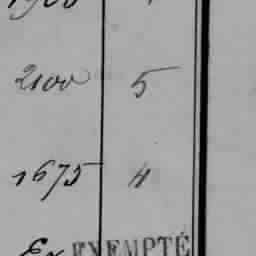 2100 5
1675 4
Ex EXEMPTÉ